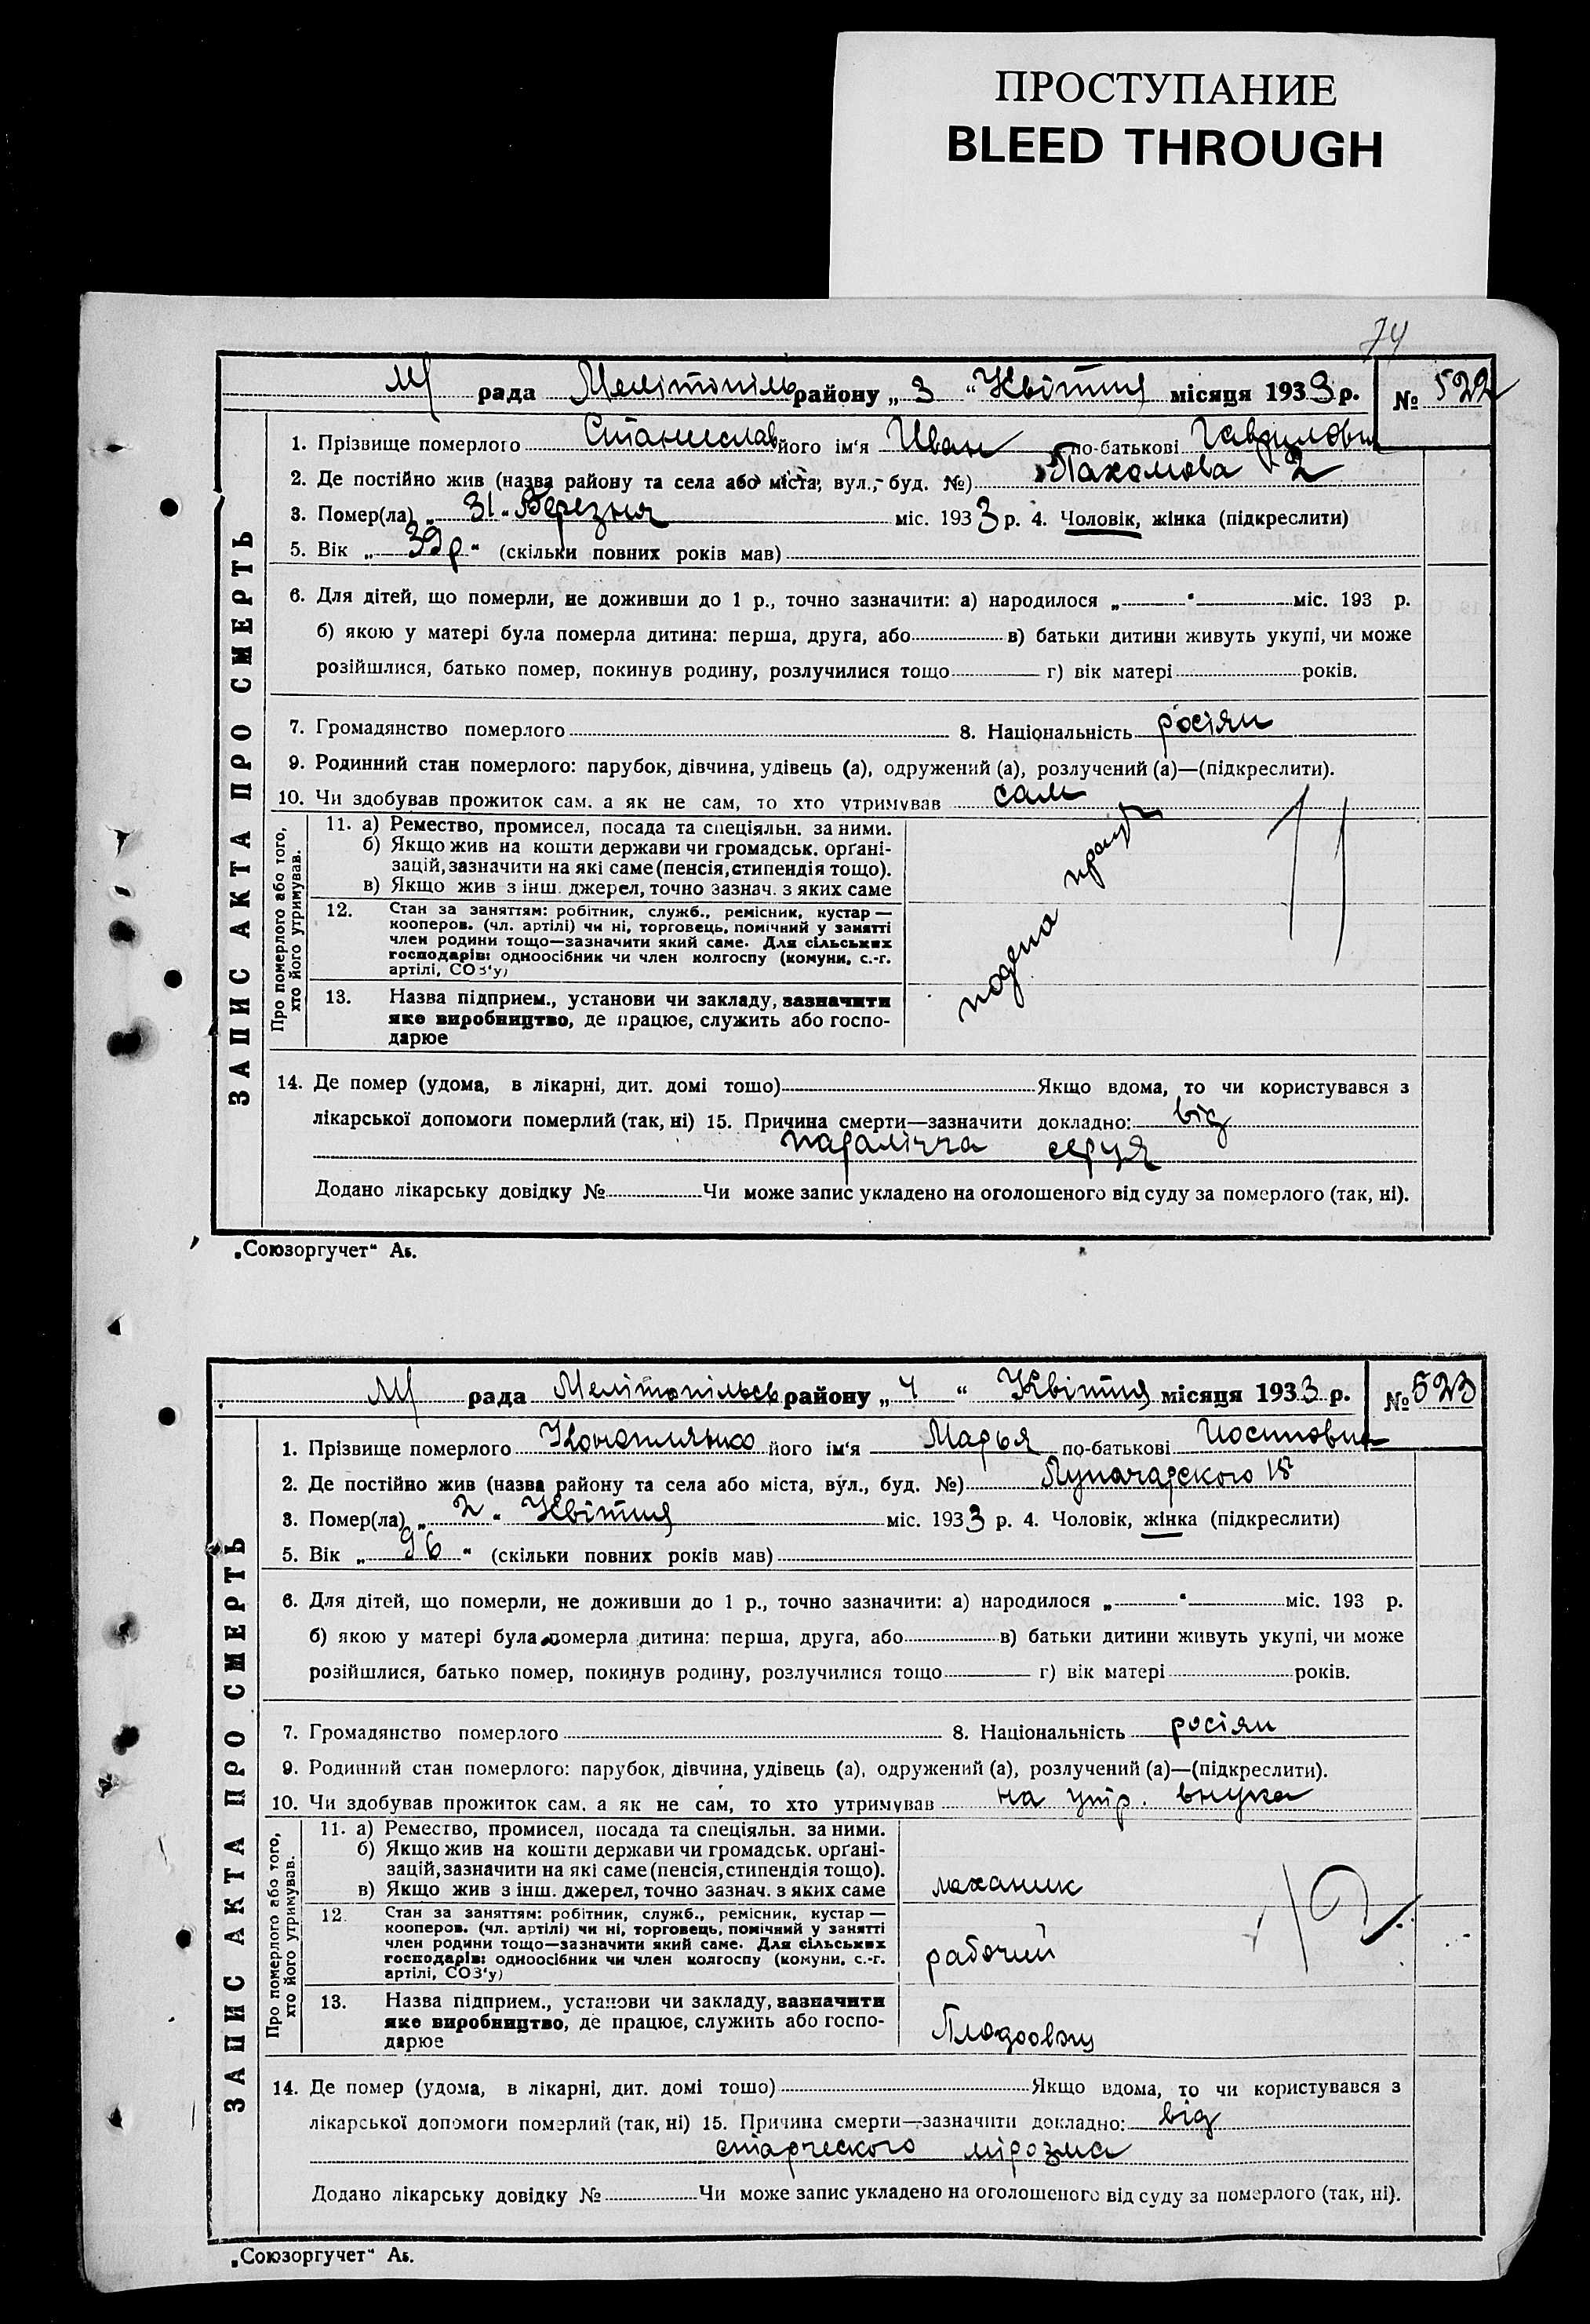 ПРОСТУПАНИЕ
BLEED THROUGH
74
рада Мелітопіль району „ 3 “ Квітня місяця 1933 р. № 522
1. Прізвище померлого Станиеслав його ім‘я Иван по-батькові Гаврилови
2. Де постійно жив (назва району та села або міста, вул., буд. №) Пахомова 2
3. Помер(ла) „ 31 “ Березня міс. 1933 р. 4. Чоловік, жінка (підкреслити)
5. Вік „ 39 р “ (скільки повних років мав)
6. Для дітей, що померли, не доживши до 1 р., точно зазначити: а) народилося „ “ міс. 193 р.
б) якою у матері була померла дитина: перша, друга, або в) батьки дитини живуть укупі, чи може
розійшлися, батько помер, покинув родину, розлучилися тощо г) вік матері років.
7. Громадянство померлого 8. Національність росіян
9. Родинний стан померлого: парубок, дівчина, удівець (а), одружений (а), розлучений (а)—(підкреслити).
10. Чи здобував прожиток сам, а як не сам, то хто утримував сам
ЗАПИС АКТА ПРО СМЕРТЬ
Про померлого або того,
хто його утримував.
11. а) Ремество, промисел, посада та спеціяльн. за ними.
б) Якщо жив на кошти держави чи громадськ. органі-
зацій, зазначити на які саме (пенсія, стипендія тощо).
в) Якщо жив з інш. джерел, точно зазнач. з яких саме
12. Стан за заняттям: робітник, служб., ремісник, кустар —
кооперов. (чл. артілі) чи ні, торговець, помічний у занятті
член родини тощо—зазначити який саме. Для сільських
господарів: одноосібник чи член колгоспу (комуни, с.-г.
артілі, СОЗ‘у)
13. Назва підприєм., установи чи закладу, зазначити
яке виробництво, де працює, служить або госпо-
дарює
подена прац
11
14. Де помер (удома, в лікарні, дит. домі тощо) Якщо вдома, то чи користувався з
лікарської допомоги померлий (так, ні) 15. Причина смерти—зазначити докладно: від
параліча серця
Додано лікарську довідку № Чи може запис укладено на оголошеного від суду за померлого (так, ні).
„Союзоргучет“ Аб.
рада Мелітопільсь району „ 4 “ Квітня місяця 1933 р. № 523
1. Прізвище померлого Конопляню його ім‘я Марья по-батькові Иосиповна
2. Де постійно жив (назва району та села або міста, вул., буд. №) Луначарского 18
3. Помер(ла) „ 2 “ Квітня міс. 1933 р. 4. Чоловік, жінка (підкреслити)
5. Вік „ 96 “ (скільки повних років мав)
6. Для дітей, що померли, не доживши до 1 р., точно зазначити: а) народилося „ “ міс. 193 р.
б) якою у матері була померла дитина: перша, друга, або в) батьки дитини живуть укупі, чи може
розійшлися, батько помер, покинув родину, розлучилися тощо г) вік матері років.
7. Громадянство померлого 8. Національність росіян
9. Родинний стан померлого: парубок, дівчина, удівець (а), одружений (а), розлучений (а)—(підкреслити).
10. Чи здобував прожиток сам, а як не сам, то хто утримував на утр. внука
ЗАПИС АКТА ПРО СМЕРТЬ
Про померлого або того,
хто його утримував.
11. а) Ремество, промисел, посада та спеціяльн. за ними.
б) Якщо жив на кошти держави чи громадськ. органі-
зацій, зазначити на які саме (пенсія, стипендія тощо).
в) Якщо жив з інш. джерел, точно зазнач. з яких саме
механик
12. Стан за заняттям: робітник, служб., ремісник, кустар —
кооперов. (чл. артілі) чи ні, торговець, помічний у занятті
член родини тощо—зазначити який саме. Для сільських
господарів: одноосібник чи член колгоспу (комуни, с.-г.
артілі, СОЗ‘у)
рабочий
13. Назва підприєм., установи чи закладу, зазначити
яке виробництво, де працює, служить або госпо-
дарює
Плодоовощ
12
14. Де помер (удома, в лікарні, дит. домі тощо) Якщо вдома, то чи користувався з
лікарської допомоги померлий (так, ні) 15. Причина смерти—зазначити докладно: від
старческого мірозма
Додано лікарську довідку № Чи може запис укладено на оголошеного від суду за померлого (так, ні).
„Союзоргучет“ Аб.